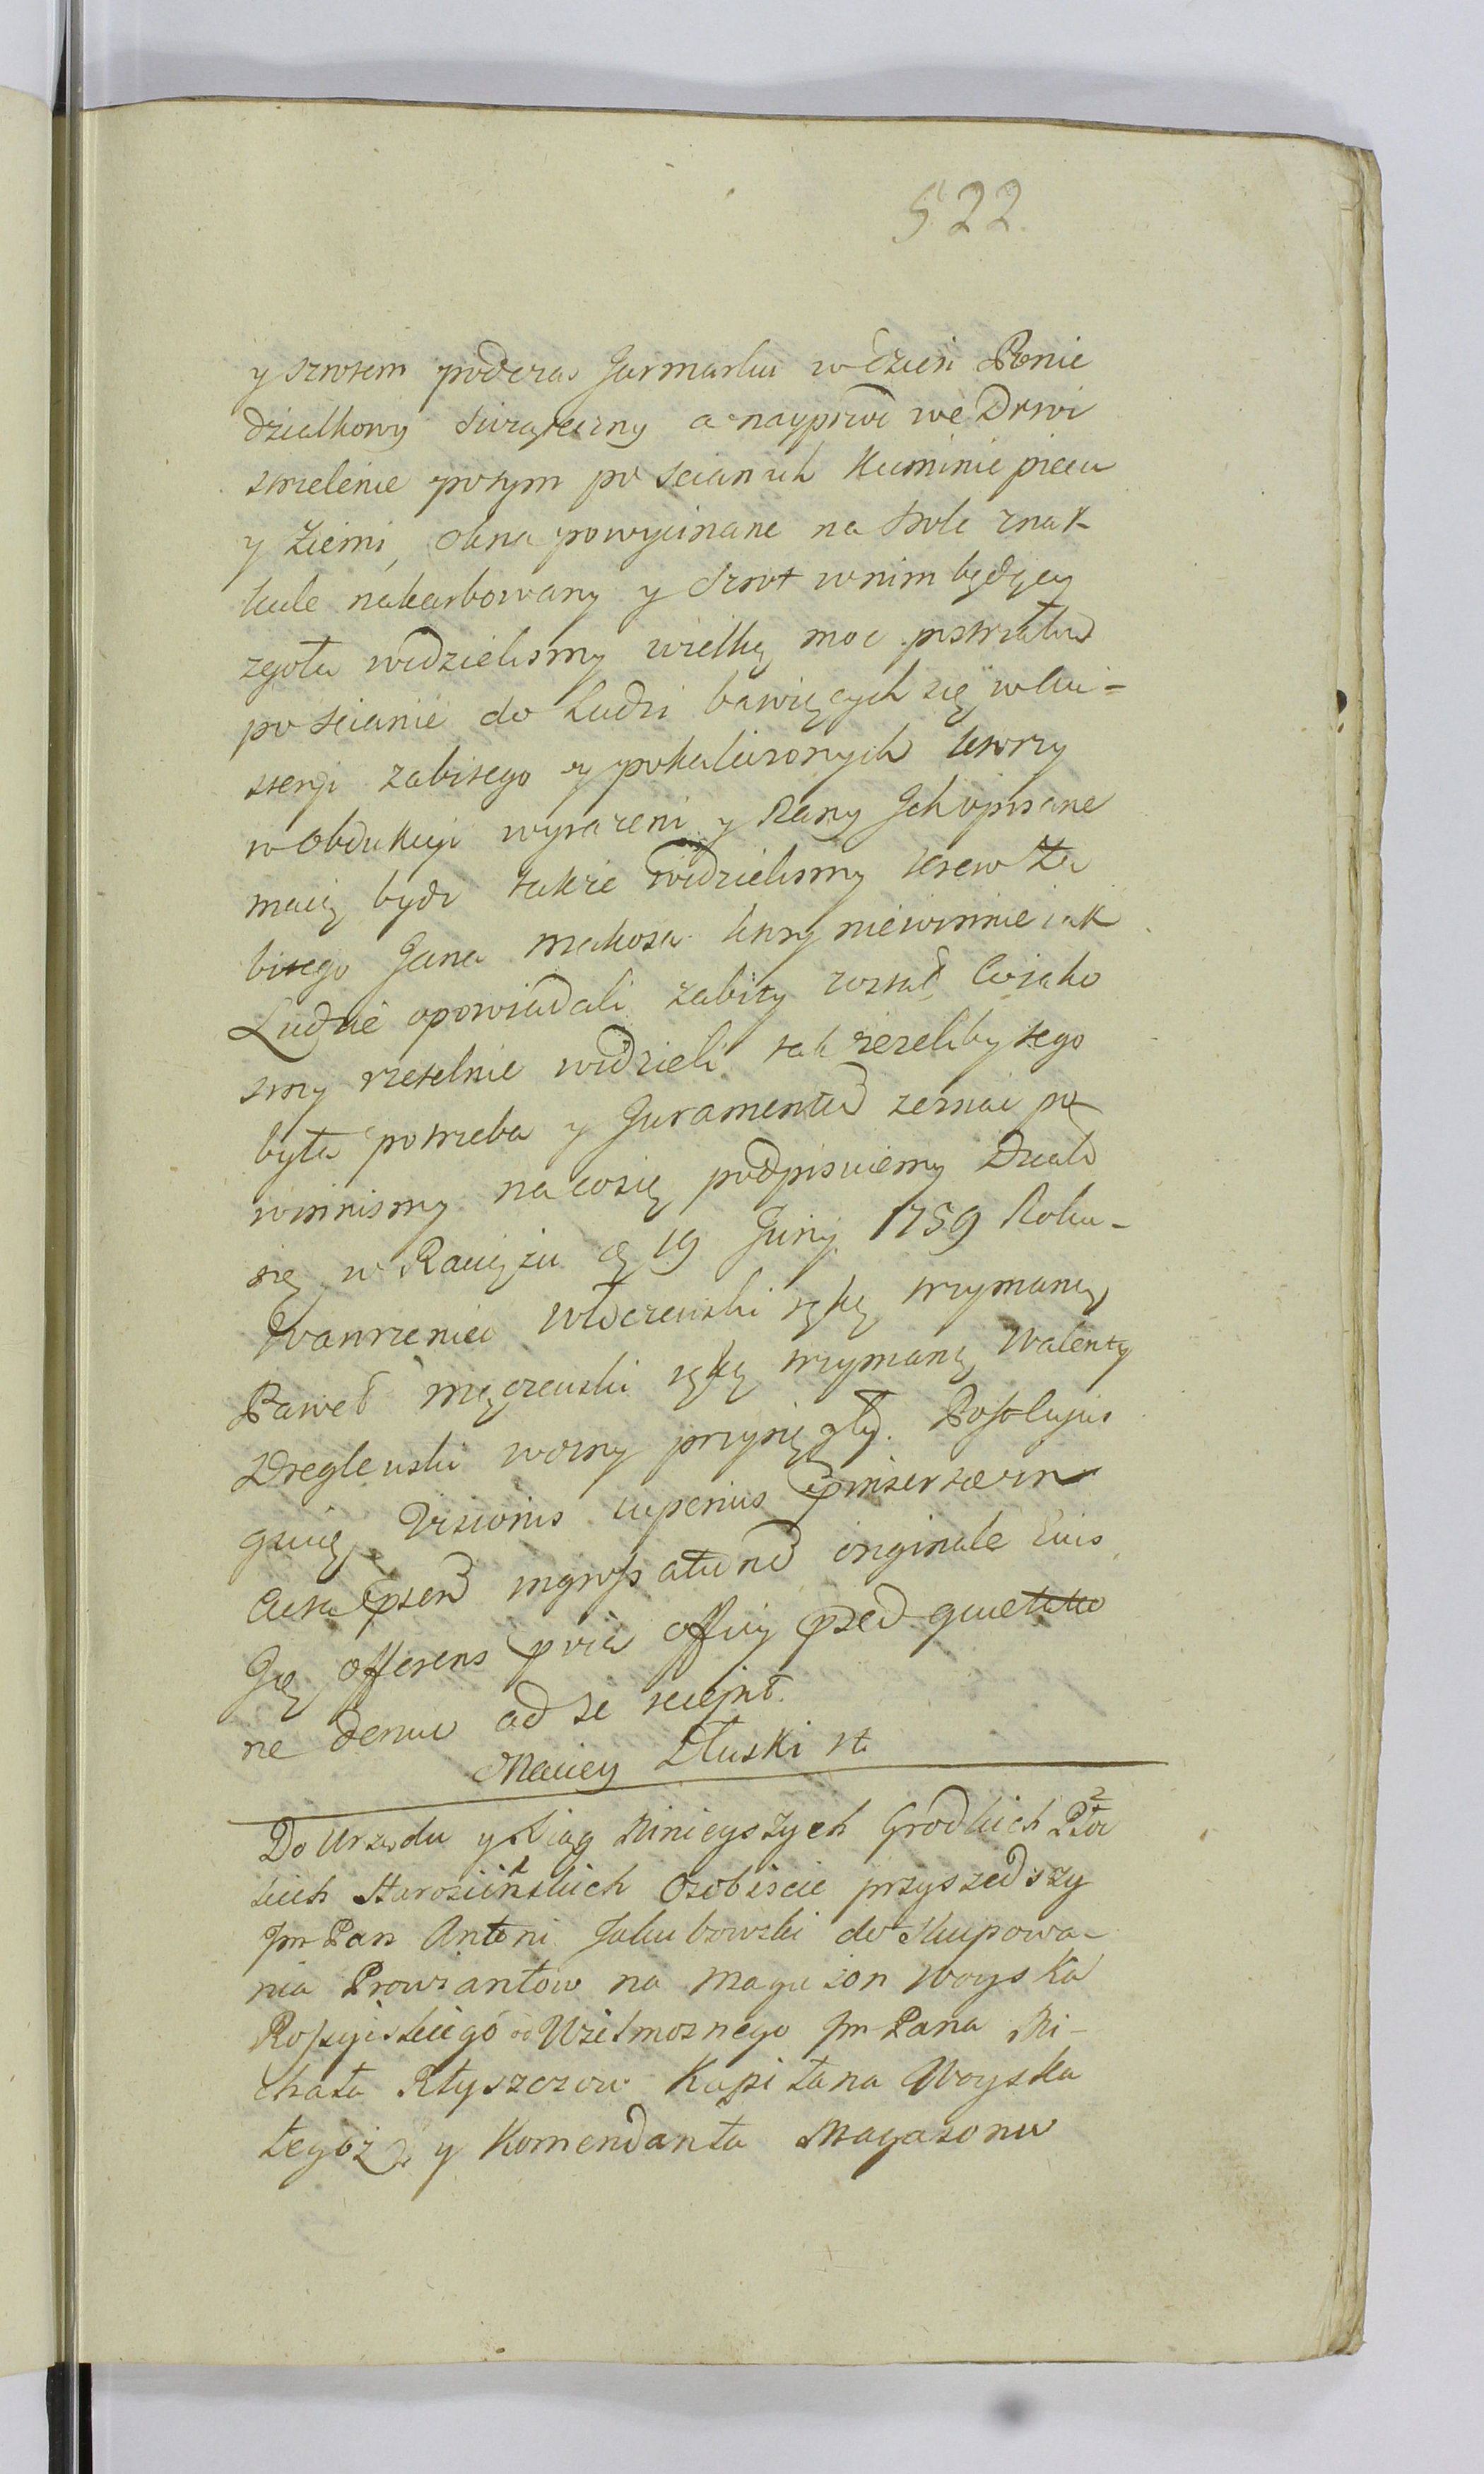 522
y szrotem podczas Jarmarku w dzień Ponie
działkowy Swiąteczny a nayprzod we Drzwi
strzelenie potym po scianach kuminie piecu
y Ziemi, okna powycinane na stole znak
kule nakarbowany y szrot w nim będący
zgoła widzielismy wielką moc postrzałow
po scianie do Ludzi bawiących się w Lui-
stencyi zabitego y pokaliczonych ktorzy
w Obdukcyi wyrazeni y Rany Jch opisane
maią bydz takze widzielismy krew Za
bitego Jana Makosa ktory niewinnie iak
Ludzie opowiadali zabity został Co iako
smy rzetelnie widzieli tak iezeliby tego
była potrzeba y Juramentem zeznac po
winnismy na co się podpisuiemy Działo
się w Raciążu d 19 Junij 1759 Roku-
Wawrzeniec Włoczewski ręką trzymaną
Paweł Mączewski ręką trzymaną Walenty
Dreglewski wozny przysięgły. Post cujus
quidem Visionis superius insertæ in
Acta præsen ingrossatunem originale eius
Jdem offerens præsen officij præsen quietato
ne denuo ad se recepit.
Maciey Dłuski R.
Do Urzędu y Xiąg Ninieyszych Grodzkich Płoc
kich Starościńskich Osobiscie przyszedszy
Jm Pan Antoni Jakubowski do Skupowa-
nia Prowiantow na Magazon Woyska
Rossyiskiego od Wielmoznego Jm Pana Mi-
chała Rtyszczow Kapitana Woyska
tegoż y Komendanta Magazonu